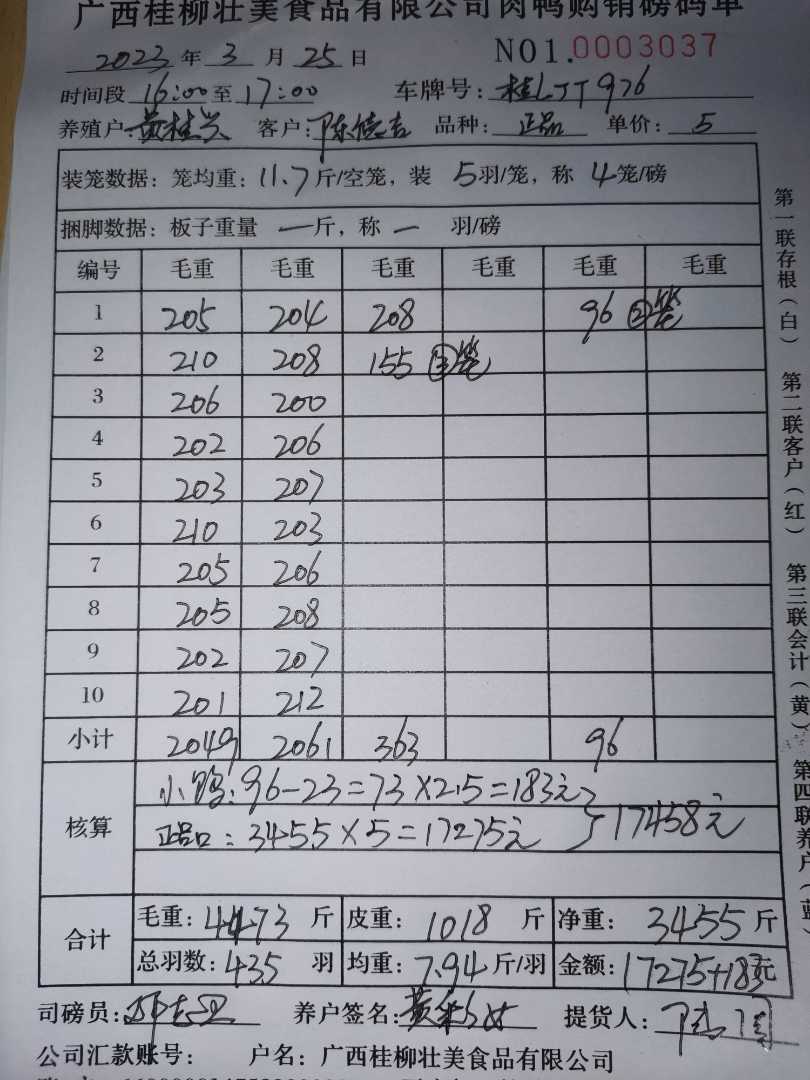 广西桂柳壮美食品有限公司肉鸭购销磅码单
2023 年 3 月 25 日 NO1.0003037
时间段 16:00 至 17:00 车牌号: 桂LJT976
养殖户: 黄桂兴 客户: 品种: 正品 单价: 5
装笼数据: 笼均重: 11.7 斤/空笼, 装 5 羽/笼, 称 4 笼/磅
捆脚数据: 板子重量 一 斤, 称 一 羽/磅
编号 毛重 毛重 毛重 毛重 毛重 毛重
1 205 204 208 96 ②笼
2 210 208 155 ③笼
3 206 200
4 202 206
5 203 207
6 210 203
7 205 206
8 205 208
9 202 207
10 201 212
小计 2049 2061 363 96
核算 小鸭: 96-23=73×2.5=183元
正品: 3455×5=17275元 } 17458元
合计 毛重: 4473 斤 皮重: 1018 斤 净重: 3455 斤
总羽数: 435 羽 均重: 7.94 斤/羽 金额: 17275+183元
司磅员: 养户签名: 提货人:
公司汇款账号: 户名: 广西桂柳壮美食品有限公司
第一联存根(白) 第二联客户(红) 第三联会计(黄) 第四联养户(蓝)